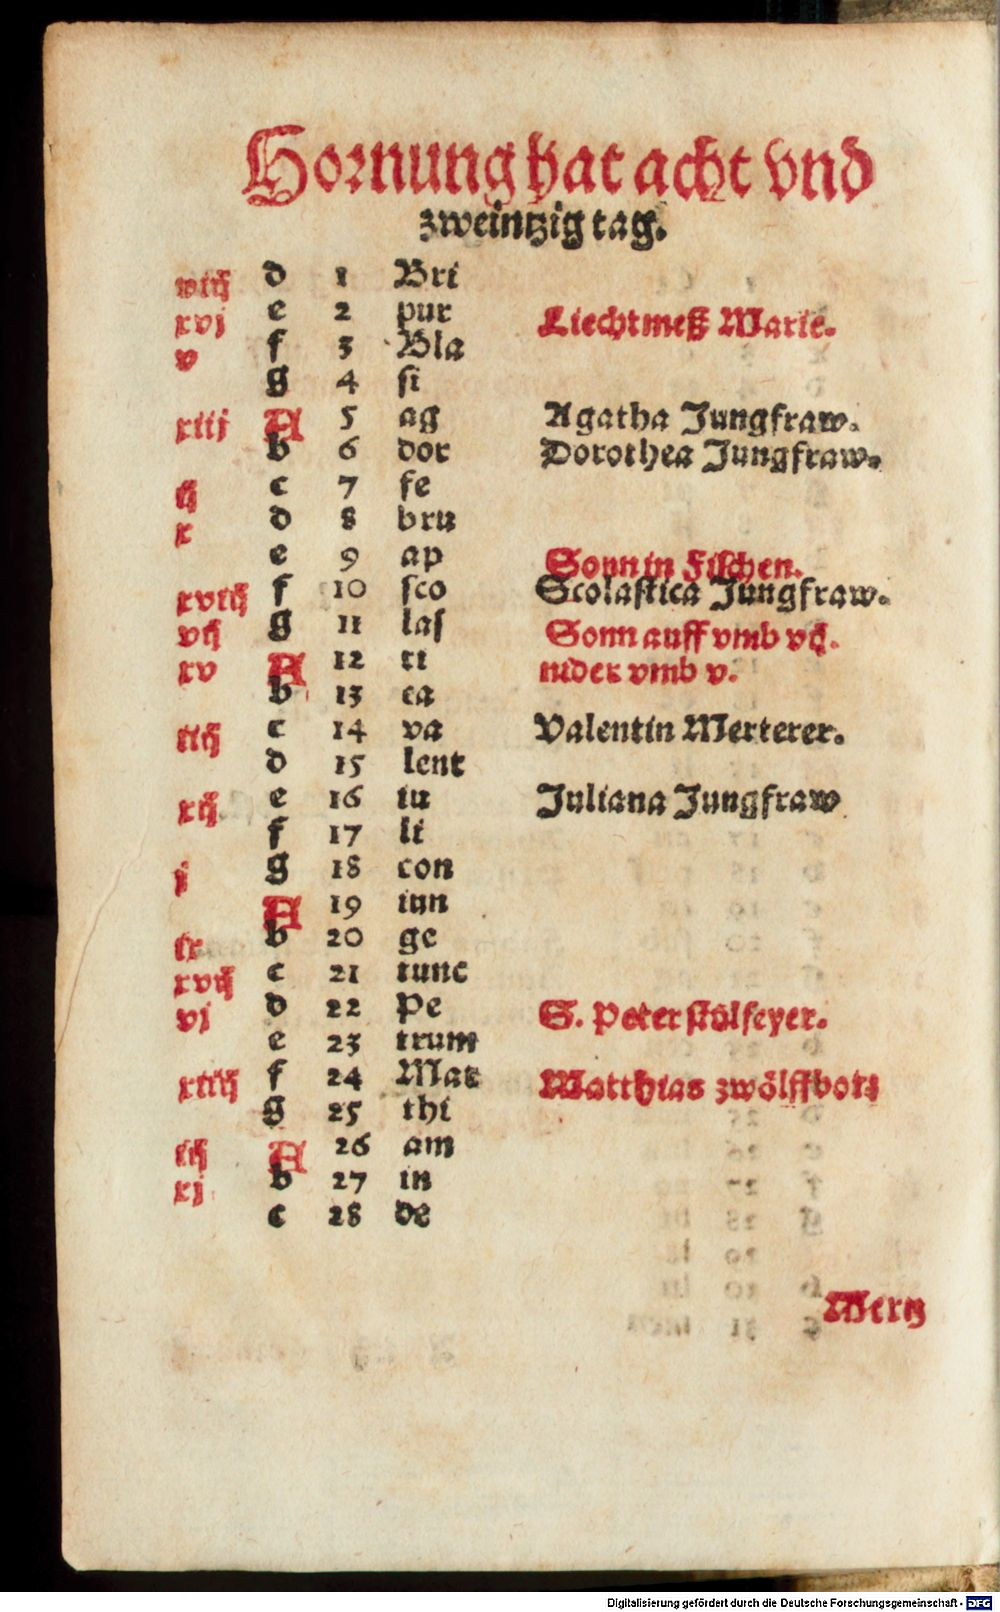 Hornung hat acht vnd
zweintzig tag.
viij d 1 Bri
xvj e 2 pur Liechtmeß Marie.
v f 3 Bla
g 4 si
xiij A 5 ag Agatha Jungfraw.
b 6 dor Dorothea Jungfraw.
ij c 7 fe
x d 8 bru
e 9 ap Sonn in Fischen.
xviij f 10 sco Scolastica Jungfraw.
vij g 11 las Sonn auff vmb vij.
xv A 12 ti nider vmb v.
b 13 ca
iiij c 14 va Valentin Merterer.
d 15 lent
xij e 16 iu Juliana Jungfraw
f 17 li
j g 18 con
A 19 iun
ix b 20 ge
xvij c 21 tunc
vj d 22 Pe S. Peter stůlfeyer.
e 23 trum
xiiij f 24 Mat Matthias zwölffbotz
g 25 thi
iij A 26 am
xj b 27 in
c 28 de
Mertz
Digitalisierung gefördert durch die Deutsche Forschungsgemeinschaft - DFG